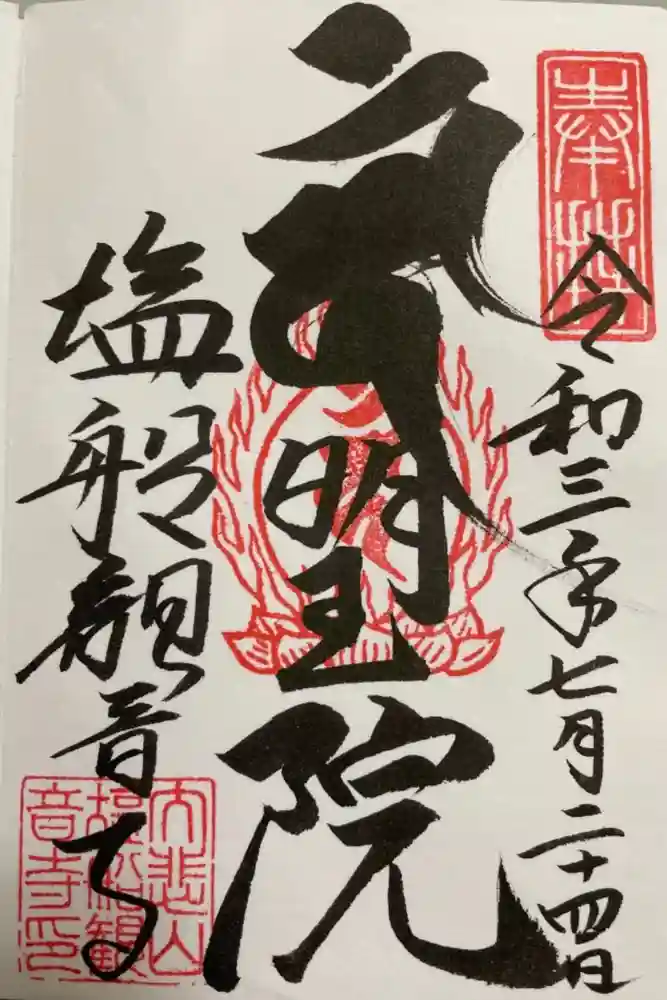 奉拝
令和三年七月二十四日
明王院
塩船観音寺
大悲山
塩船観
音寺印